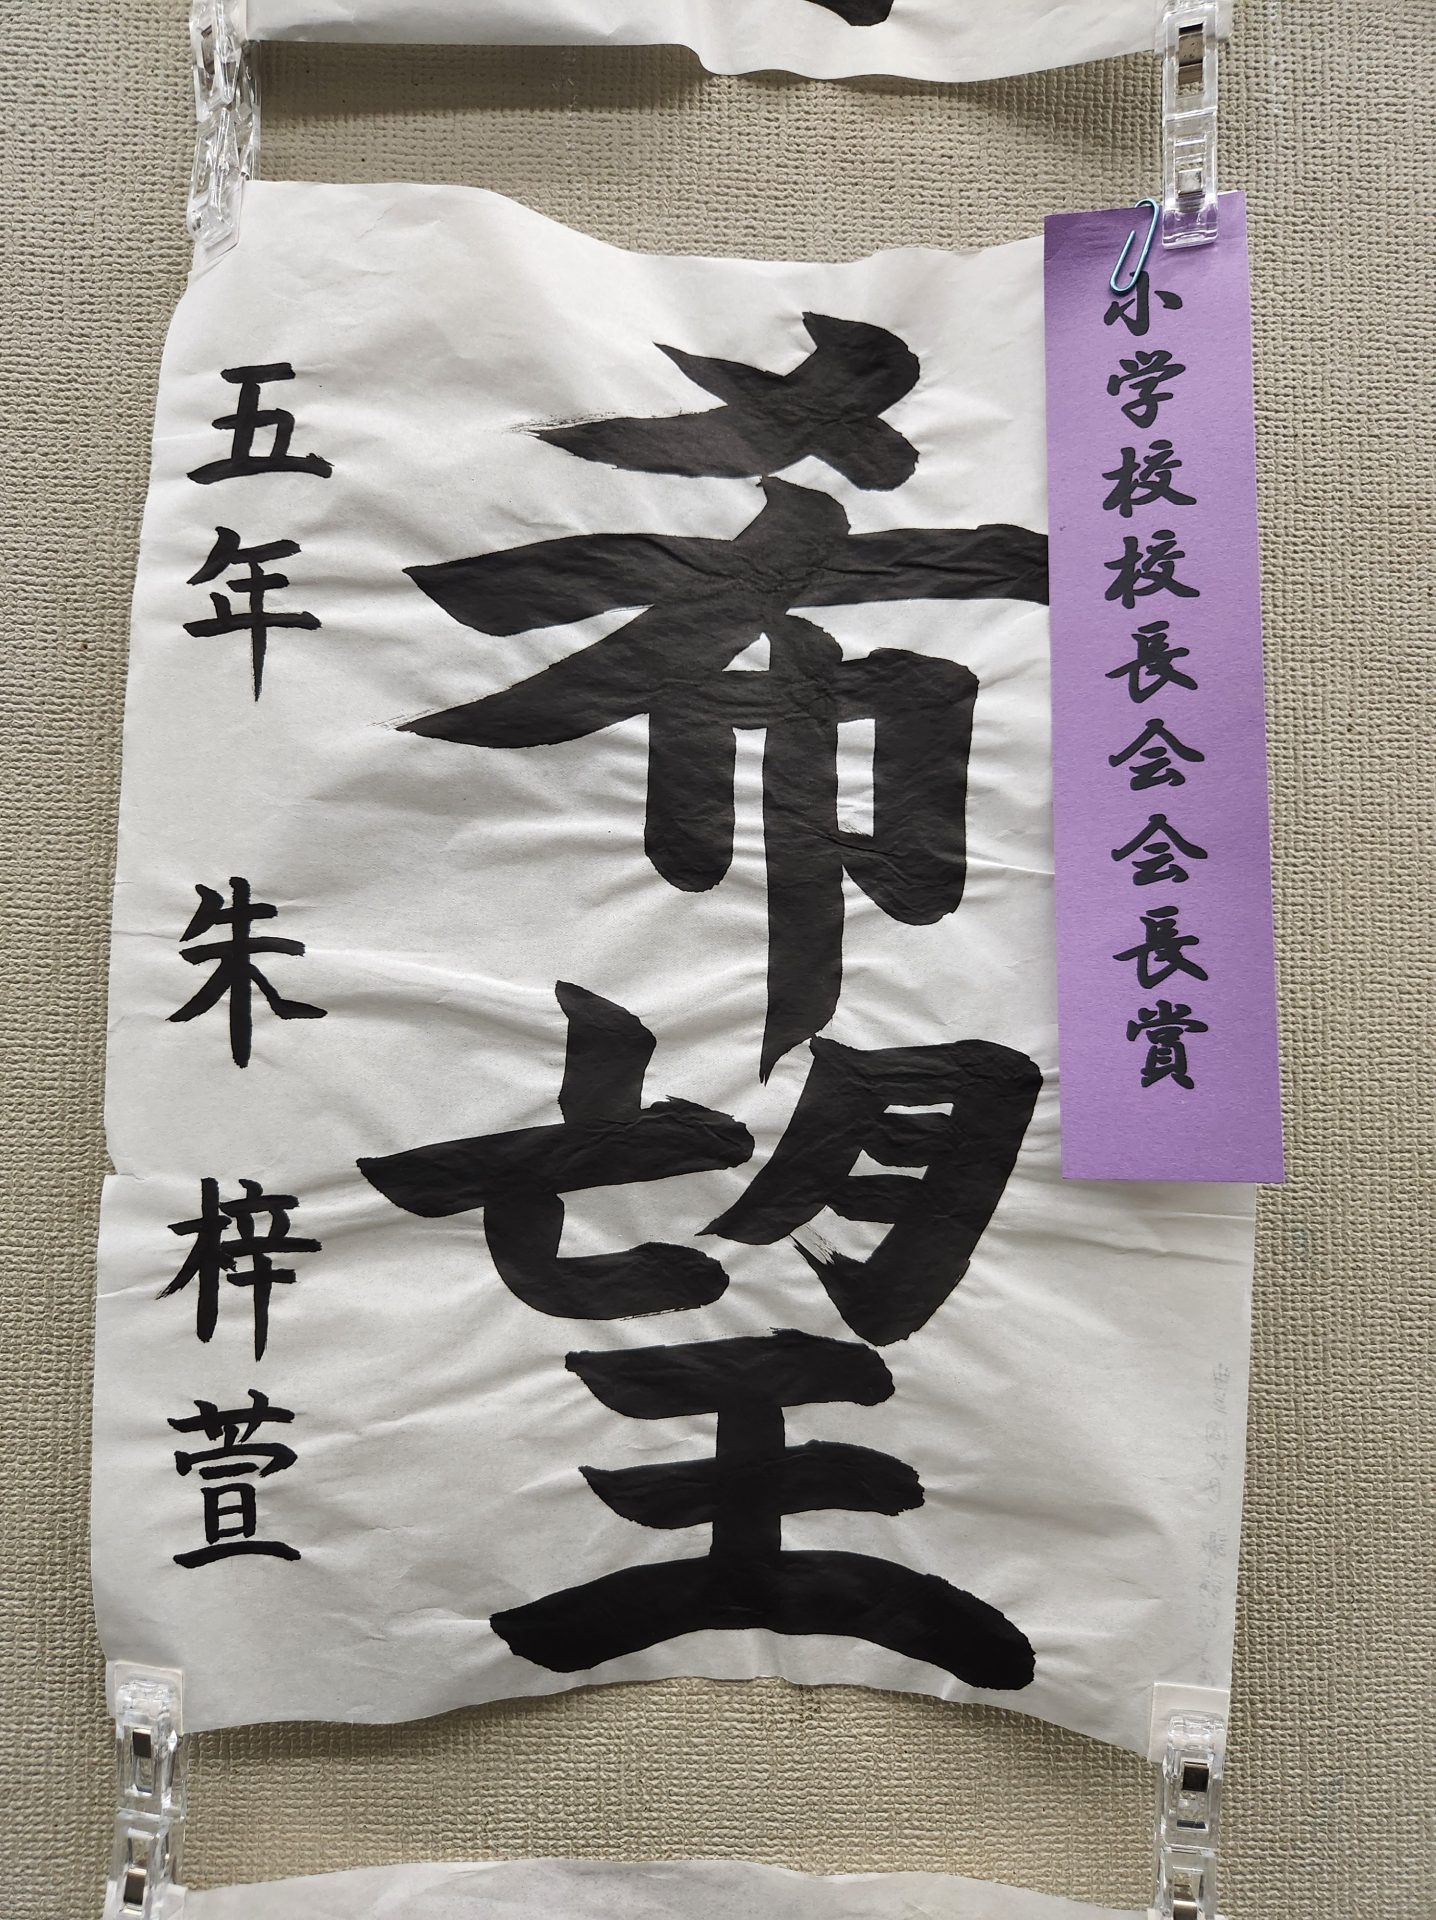 小学校校長会会長賞
希望
五年 朱梓萱